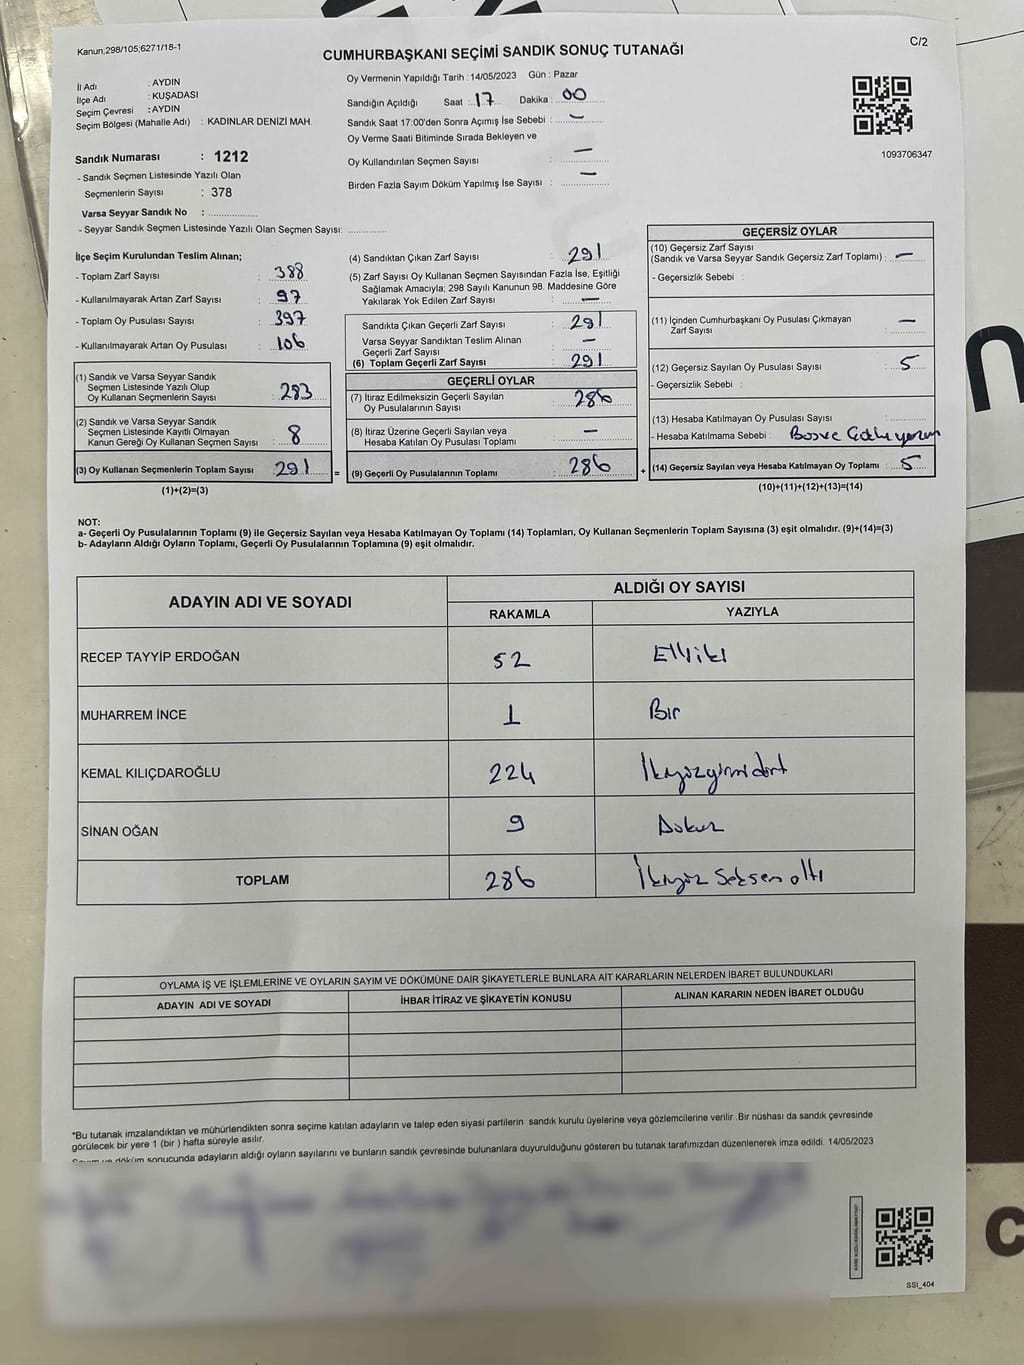 Kanun;298/105;6271/18-1
C/2
CUMHURBAŞKANI SEÇİMİ SANDIK SONUÇ TUTANAĞI
İl Adı : AYDIN
İlçe Adı : KUŞADASI
Seçim Çevresi : AYDIN
Seçim Bölgesi (Mahalle Adı) : KADINLAR DENİZİ MAH.
Sandık Numarası : 1212
- Sandık Seçmen Listesinde Yazılı Olan
Seçmenlerin Sayısı : 378
Varsa Seyyar Sandık No :
- Seyyar Sandık Seçmen Listesinde Yazılı Olan Seçmen Sayısı:
Oy Vermenin Yapıldığı Tarih : 14/05/2023 Gün : Pazar
Sandığın Açıldığı Saat : 17 Dakika : 00
Sandık Saat 17:00'den Sonra Açımış İse Sebebi : —
Oy Verme Saati Bitiminde Sırada Bekleyen ve
Oy Kullandırılan Seçmen Sayısı : —
Birden Fazla Sayım Döküm Yapılmış İse Sayısı : —
1093706347
İlçe Seçim Kurulundan Teslim Alınan;
- Toplam Zarf Sayısı : 388
- Kullanılmayarak Artan Zarf Sayısı : 97
- Toplam Oy Pusulası Sayısı : 397
- Kullanılmayarak Artan Oy Pusulası : 106
(1) Sandık ve Varsa Seyyar Sandık
Seçmen Listesinde Yazılı Olup
Oy Kullanan Seçmenlerin Sayısı : 283
(2) Sandık ve Varsa Seyyar Sandık
Seçmen Listesinde Kayıtlı Olmayan
Kanun Gereği Oy Kullanan Seçmen Sayısı : 8
(3) Oy Kullanan Seçmenlerin Toplam Sayısı : 291
(1)+(2)=(3)
(4) Sandıktan Çıkan Zarf Sayısı : 291
(5) Zarf Sayısı Oy Kullanan Seçmen Sayısından Fazla İse, Eşitliği
Sağlamak Amacıyla; 298 Sayılı Kanunun 98. Maddesine Göre
Yakılarak Yok Edilen Zarf Sayısı : —
Sandıkta Çıkan Geçerli Zarf Sayısı : 291
Varsa Seyyar Sandıktan Teslim Alınan
Geçerli Zarf Sayısı : —
(6) Toplam Geçerli Zarf Sayısı : 291
GEÇERLİ OYLAR
(7) İtiraz Edilmeksizin Geçerli Sayılan
Oy Pusulalarının Sayısı : 286
(8) İtiraz Üzerine Geçerli Sayılan veya
Hesaba Katılan Oy Pusulası Toplamı : —
= (9) Geçerli Oy Pusulalarının Toplamı : 286
GEÇERSİZ OYLAR
(10) Geçersiz Zarf Sayısı
(Sandık ve Varsa Seyyar Sandık Geçersiz Zarf Toplamı) : —
- Geçersizlik Sebebi :
(11) İçinden Cumhurbaşkanı Oy Pusulası Çıkmayan
Zarf Sayısı : —
(12) Geçersiz Sayılan Oy Pusulası Sayısı : 5
- Geçersizlik Sebebi :
(13) Hesaba Katılmayan Oy Pusulası Sayısı :
- Hesaba Katılmama Sebebi :
+ (14) Geçersiz Sayılan veya Hesaba Katılmayan Oy Toplamı : 5
(10)+(11)+(12)+(13)=(14)
NOT:
a- Geçerli Oy Pusulalarının Toplamı (9) ile Geçersiz Sayılan veya Hesaba Katılmayan Oy Toplamı (14) Toplamları, Oy Kullanan Seçmenlerin Toplam Sayısına (3) eşit olmalıdır. (9)+(14)=(3)
b- Adayların Aldığı Oyların Toplamı, Geçerli Oy Pusulalarının Toplamına (9) eşit olmalıdır.
ADAYIN ADI VE SOYADI
ALDIĞI OY SAYISI
RAKAMLA YAZIYLA
RECEP TAYYİP ERDOĞAN 52 Elliiki
MUHARREM İNCE 1 Bir
KEMAL KILIÇDAROĞLU 224 İkiyüzyirmidört
SİNAN OĞAN 9 Dokuz
TOPLAM 286 İkiyüz Seksen altı
OYLAMA İŞ VE İŞLEMLERİNE VE OYLARIN SAYIM VE DÖKÜMÜNE DAİR ŞİKAYETLERLE BUNLARA AİT KARARLARIN NELERDEN İBARET BULUNDUKLARI
ADAYIN ADI VE SOYADI İHBAR İTİRAZ VE ŞİKAYETİN KONUSU ALINAN KARARIN NEDEN İBARET OLDUĞU
*Bu tutanak imzalandıktan ve mühürlendikten sonra seçime katılan adayların ve talep eden siyasi partilerin sandık kurulu üyelerine veya gözlemcilerine verilir .Bir nüshası da sandık çevresinde
görülecek bir yere 1 (bir ) hafta süreyle asılır.
Sayım ve döküm sonucunda adayların aldığı oyların sayılarını ve bunların sandık çevresinde bulunanlara duyurulduğunu gösteren bu tutanak tarafımızdan düzenlenerek imza edildi. 14/05/2023
SSI_404